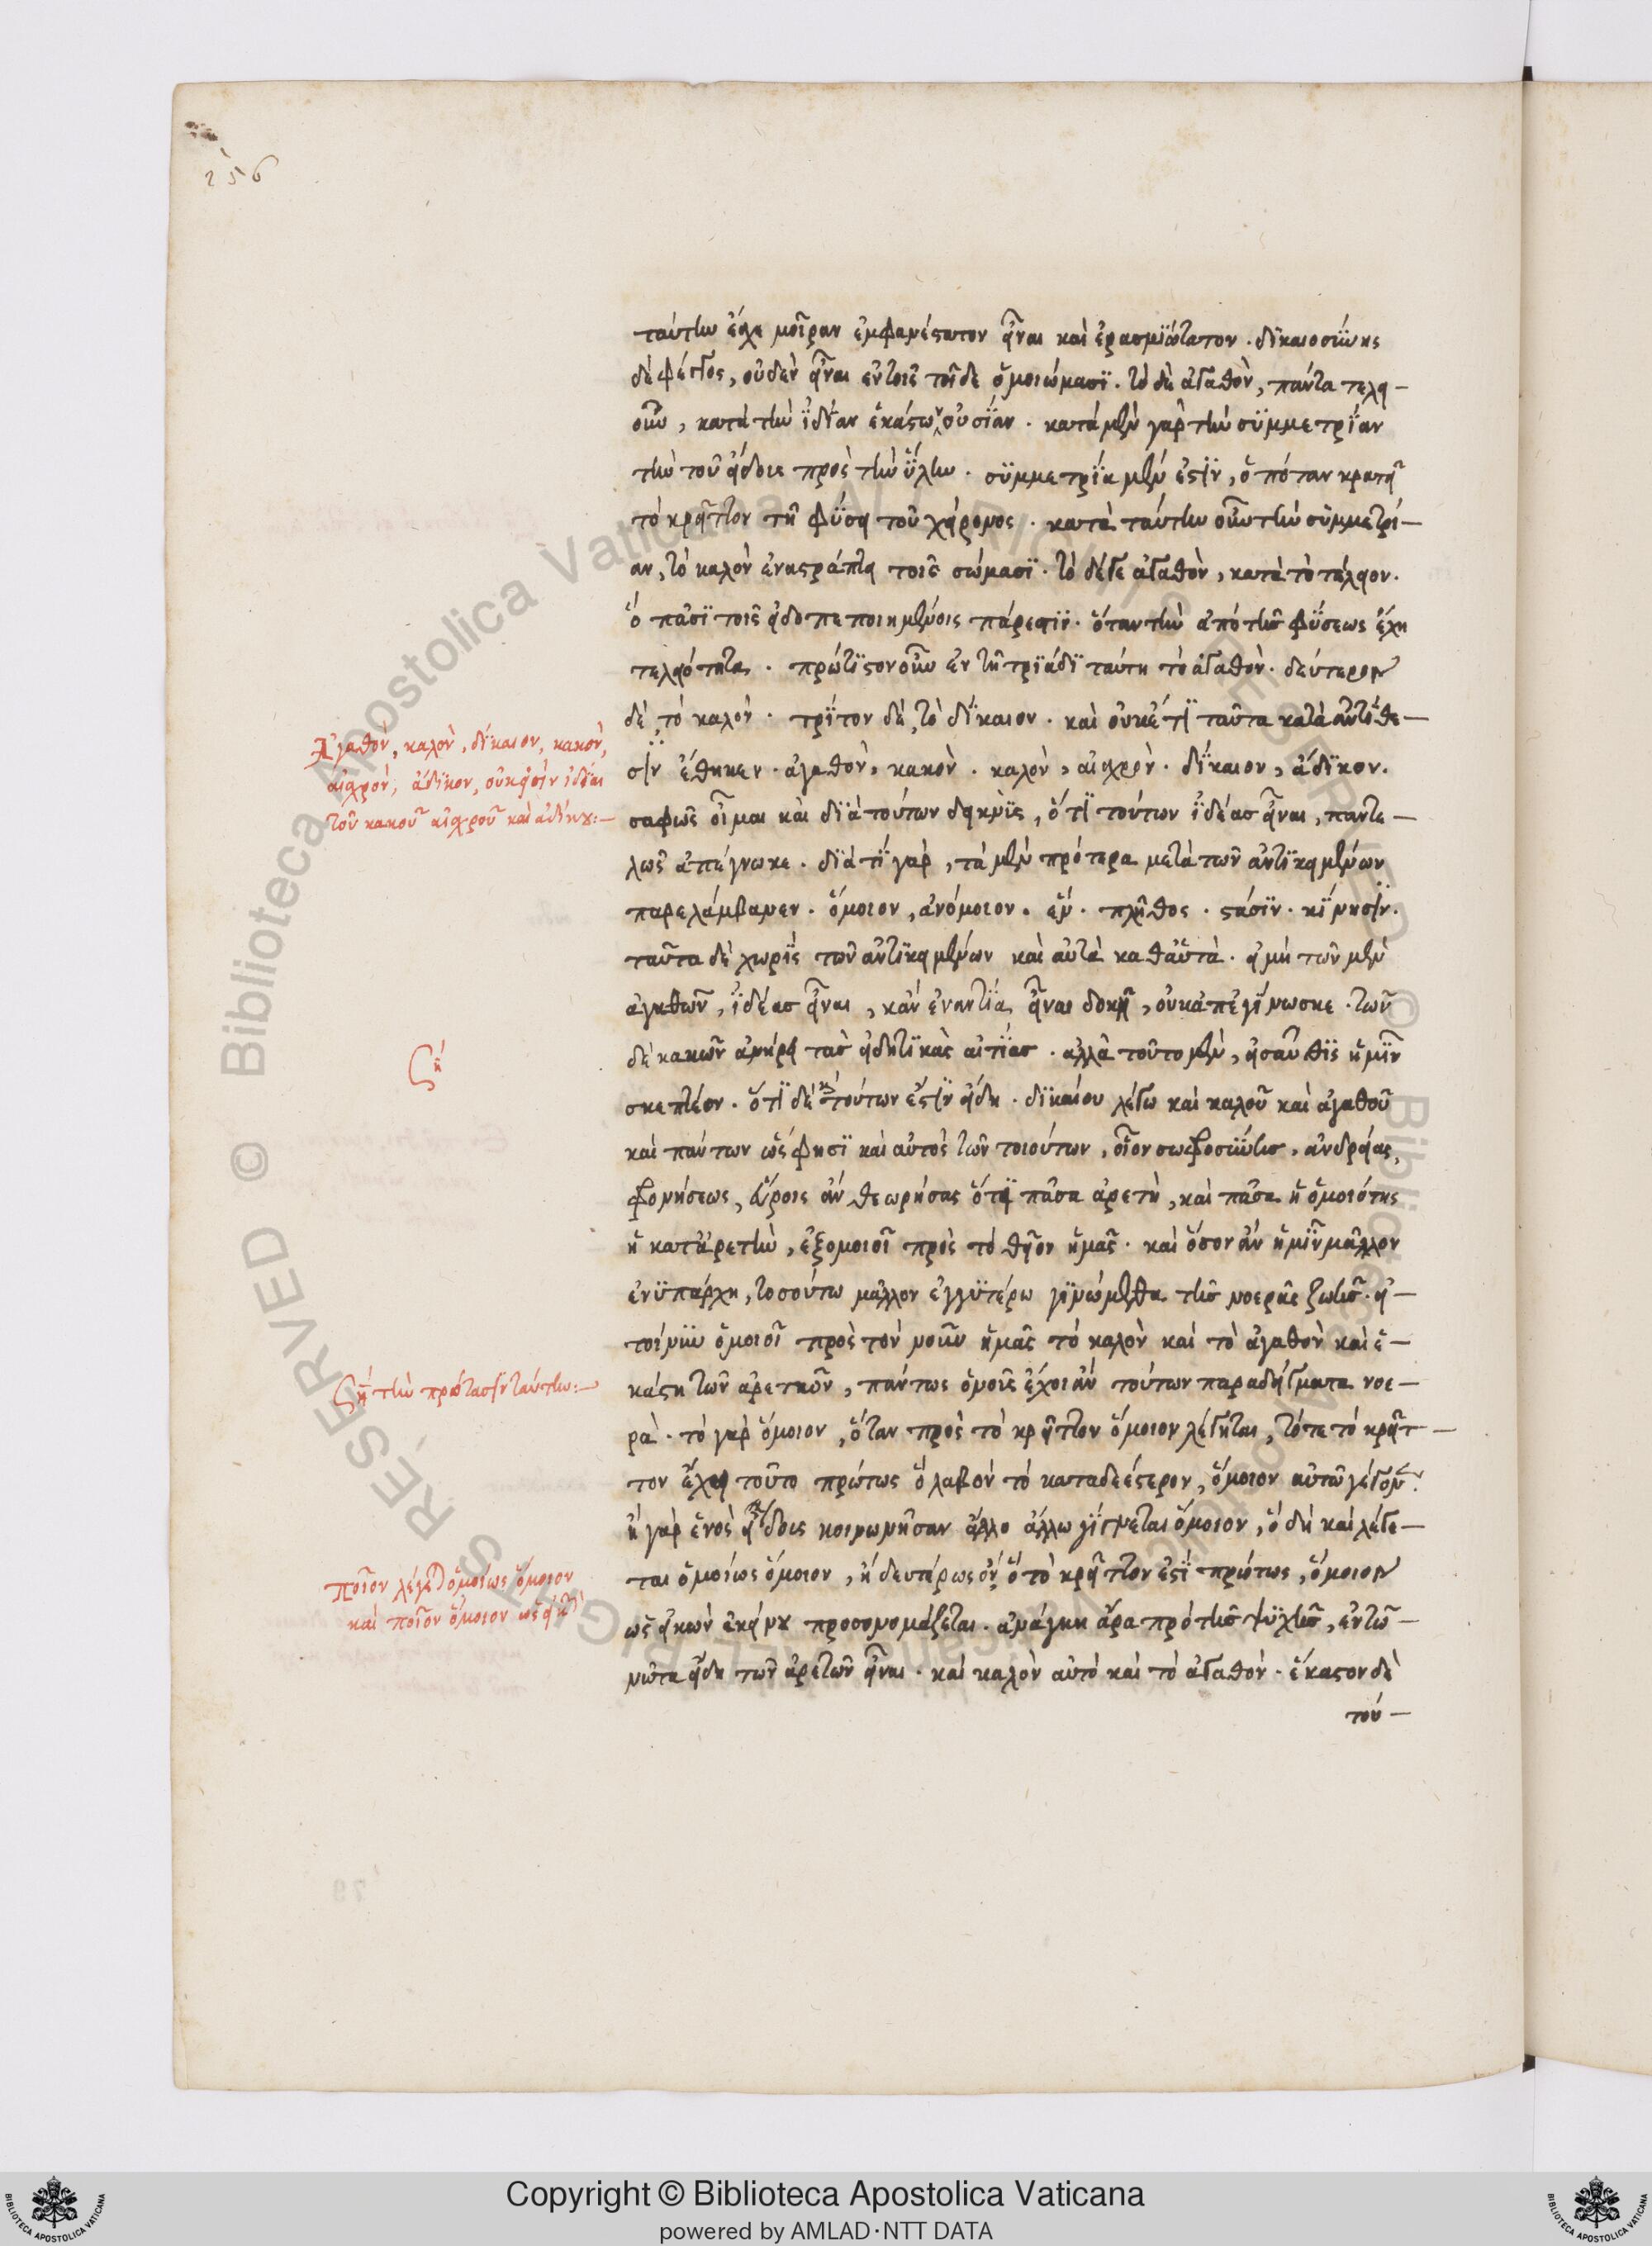 256
ταύτην ἔσχε μοῖραν ἐμφανέστατον εἶναι καὶ ἐρασμϊώτατον. δϊκαιοσΰνης
δὲ φέγγος, οὐδὲν εἶναι ἐν τοῖς τοῖδε ὁμοιώμασϊ. τὸ δὲ ἀγαθὸν, πάντα τελει-
οῦν, κατὰ τὴν ἰδίαν ἑκάστων οὐσίαν. κατὰ μὲν γὰρ τὴν συμμετρίαν
τὴν τοῦ εἴδους πρὸς τὴν ὕλην. συμμετρία μέν ἐστϊν, ὁπόταν κρατῇ
τὸ κρεῖττον τῇ φύσει τοῦ χείρονος. κατὰ ταύτην οὖν τὴν συμμετρί-
αν, τὸ καλὸν ἐναστράπτει τοῖς σώμασϊ. τὸ δέ γε ἀγαθὸν, κατὰ τὸ τέλειον.
ὃ πᾶσϊ τοῖς εἰδοπεποιημένοις πάρεστϊν. ὅταν τὴν ἀπὸ τῆς φύσεως ἔχη
τελειότητα. πρώτϊστον οὖν ἐν τῇ τρϊάδϊ ταύτη τὸ ἀγαθόν. δεύτερον
δὲ, τὸ καλόν. τρίτον δὲ, τὸ δίκαιον. καὶ οὐκέτϊ ταῦτα κατὰ ἀντίθε-
σϊν ἔθηκεν. ἀγαθὸν, κακὸν. καλὸν, αἰσχρὸν. δίκαιον, ἄδϊκον.
σαφῶς οἶμαι καὶ δϊὰ τούτων δεικνὺς, ὅτϊ τούτων ἰδέας εἶναι, παντε-
λῶς ἀπέγνωκε. δϊὰ τί γὰρ, τὰ μὲν πρότερα μετὰ τῶν ἀντϊκειμένων
παρελάμβανεν. ὅμοιον, ἀνόμοιον. ἕν. πλῆθος. στάσϊν. κίνησϊν.
ταῦτα δὲ χωρὶς τῶν ἀντϊκειμένων καὶ αὐτὰ καθ' αὑτὰ. εἰ μὴ τῶν μὲν
ἀγαθῶν, ἰδέας εἶναι, κἂν ἐναντία εἶναι δοκῇ, οὐκ ἀπεγίνωσκε. τῶν
δὲ κακῶν ἀνῄρει τὰς εἰδητϊκὰς αἰτίας. ἀλλὰ τοῦτο μὲν, εἰσαῦθϊς ἡμῖν
σκεπτέον. ὅτϊ δὲ καὶ τούτων ἐστϊν εἴδη. δϊκαίου λέγω καὶ καλοῦ καὶ ἀγαθοῦ
καὶ πάντων ὥς φησϊ καὶ αὐτὸς τῶν τοιούτων, οἷον σωφροσύνης, ἀνδρείας,
φρονήσεως, εὕροις ἂν θεωρήσας ὅτϊ πᾶσα ἀρετὴ, καὶ πᾶσα ἡ ὁμοιότης
ἡ κατ' ἀρετὴν, ἐξομοιοῖ πρὸς τὸ θεῖον ἡμᾶς. καὶ ὅσον ἂν ἡμῖν μᾶλλον
ἐνϋπάρχη, τοσούτω μᾶλλον ἐγγϋτέρω γϊνώμεθα τῆς νοερᾶς ζωῆς. εἰ
τοίνϋν ὁμοιοῖ πρὸς τὸν νοῦν ἡμᾶς τὸ καλὸν καὶ τὸ ἀγαθὸν καὶ ἑ-
κάστη τῶν ἀρετῶν, πάντως ὁ νοῦς ἔχοι ἂν τούτων παραδείγματα νοε-
ρὰ. τὸ γὰρ ὅμοιον, ὅταν πρὸς τὸ κρεῖττον ὅμοιον λέγηται, τότε τὸ κρεῖτ-
τον ἔχει τοῦτο πρώτως ὃ λαβὸν τὸ καταδεέστερον, ὅμοιον αὐτῶ γέγονεν.
ἢ γὰρ ἑνὸς εἴδους κοινωνῆσαν ἄλλο ἄλλω γίγνεται ὅμοιον, ὃ δὴ καὶ λέγε-
ται ὁμοίως ὅμοιον, ἢ δευτέρως ὂν ὃ τὸ κρεῖττόν ἐστϊ πρώτως, ὅμοιον
ὡς εἰκὼν ἐκείνου προσονομάζεται. ἀνάγκη ἄρα πρὸ τῆς ψϋχῆς, ἐν τῶ
νῶ τὰ εἴδη τῶν ἀρετῶν εἶναι. καὶ καλὸν αὐτὸ καὶ τὸ ἀγαθὸν. ἕκαστον δὲ
τού-
Ἀγαθὸν, καλὸν, δίκαιον, κακὸν,
αἰσχρὸν, ἄδϊκον, οὐκ εἰσὶν ἰδέαι
τοῦ κακοῦ αἰσχροῦ καὶ ἀδίκου:-
Ση
Ση τὴν πρότασϊν ταύτην:-
Ποῖον λέγεται ὁμοίως ὅμοιον
καὶ ποῖον ὅμοιον ὡς εἰκὼν
Copyright © Biblioteca Apostolica Vaticana
powered by AMLAD·NTT DATA